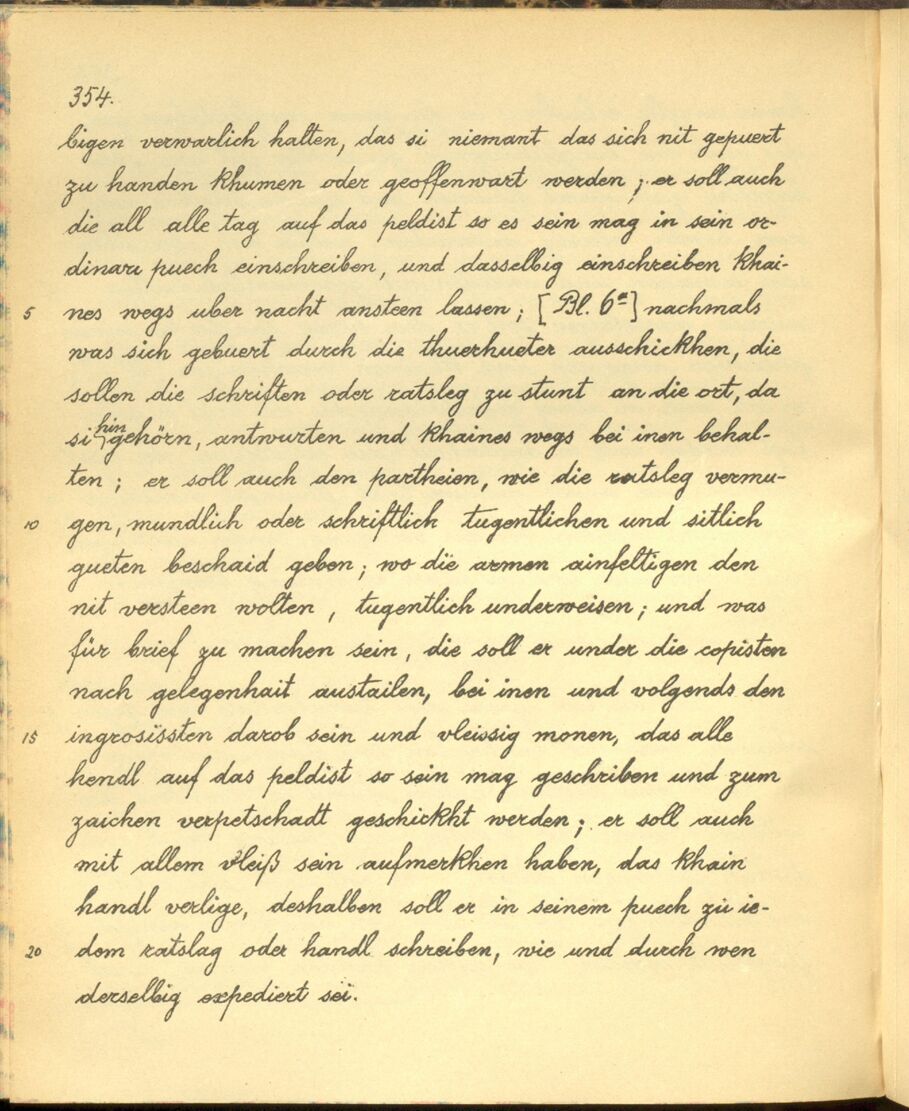 354.
bigen verwarlich halten, das si niemant das sich nit gepuert
zu handen khumen oder geoffenwart werden; er soll auch
die all alle tag auf das peldist so es sein mag in sein or-
dinari puech einschreiben, und dasselbig einschreiben khai-
5 nes wegs uber nacht ansteen lassen; [Bl. 6a] nachmals
was sich gebuert durch die thuerhueter ausschickhen, die
sollen die schriften oder ratsleg zu stunt an die ort, da
si hingehörn, antwurten und khaines wegs bei inen behal-
ten; er soll auch den partheien, wie die ratsleg vermu-
10 gen, mundlich oder schriftlich tugentlichen und sitlich
gueten beschaid geben; wo die armen ainfeltigen den
nit versteen wolten, tugentlich underweisen; und was
für brief zu machen sein, die soll er under die copisten
nach gelegenhait austailen, bei inen und volgends den
15 ingrosissten darob sein und vleissig monen, das alle
hendl auf das peldist so sein mag geschriben und zum
zaichen verpetschadt geschickht werden; er soll auch
mit allem vleiß sein aufmerkhen haben, das khain
handl verlige, deshalben soll er in seinem puech zu ie-
20 dem ratslag oder handl schreiben, wie und durch wen
derselbig expediert sei.